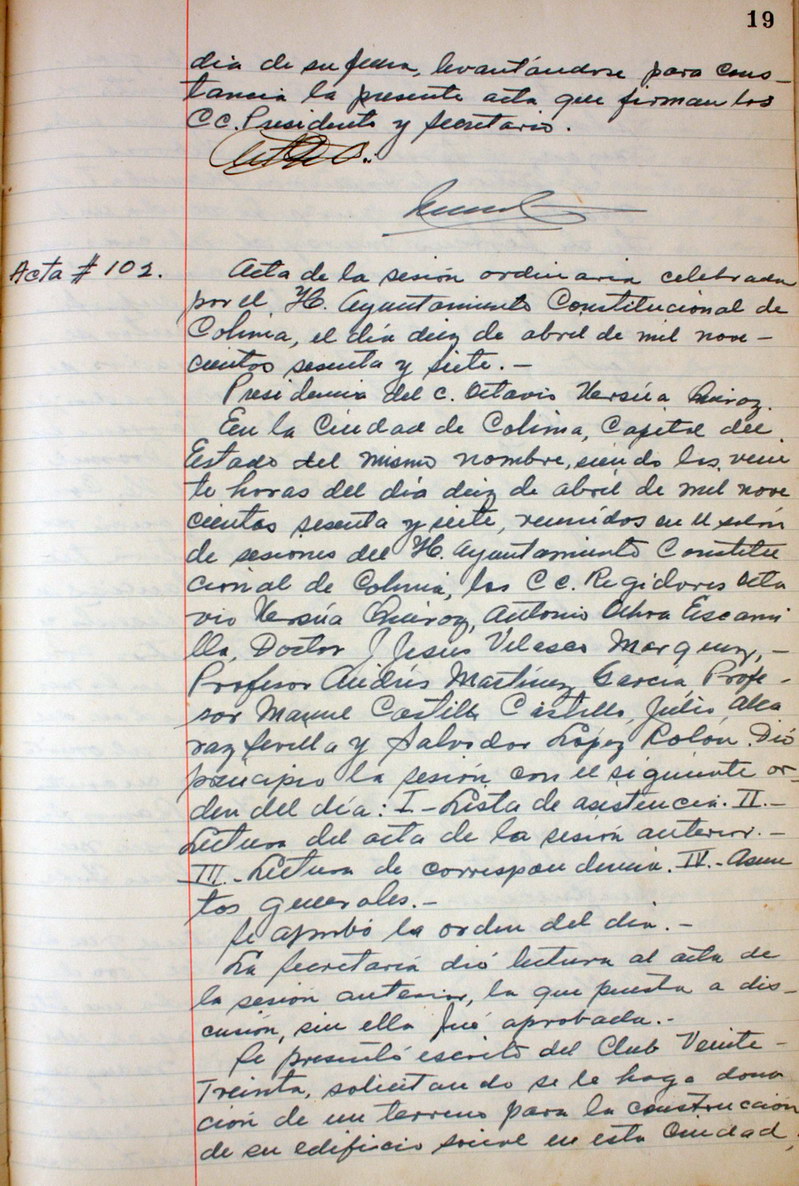 19
dia de su fecha, levantándose para cons-
tancia la presente acta que firman los
CC. Presidente y Secretario.
Acta # 102.
Acta de la sesión ordinaria celebrada
por el H. Ayuntamiento Constitucional de
Colima, el día diez de abril de mil nove-
cientos sesenta y siete.-
Presidencia del C. Octavio Ursúa Quiroz.
En la Ciudad de Colima, Capital del
Estado del mismo nombre, siendo las vein
te horas del día diez de abril de mil nove
cientos sesenta y siete, reunidos en el salón
de sesiones del H. Ayuntamiento Constitu
cional de Colima, los CC. Regidores Octa
vio Ursúa Quiroz, Antonio Ochoa Escami
lla, Doctor J. Jesús Velasco Marquez,-
Profesor Andrés Martínez García Profe-
sor Manuel Castillo Castillo, Julio Alca
raz Sevilla y Salvador López Rolón. Dió
principio la sesión con el siguiente or-
den del día: I- Lista de asistencia. II.-
Lectura del acta de la sesión anterior.-
III.- Lectura de correspondencia. IV.- Asun
tos generales.-
Se aprobó la orden del dia.-
La Secretaría dió lectura al acta de
la sesión anterior, la que puesta a dis-
cusión, sin ella fué aprobada.-
Se presentó escrito del Club Veinte-
Treinta, solicitando se le haga dona
ción de un terreno para la construcción
de su edificio social en esta Ciudad,